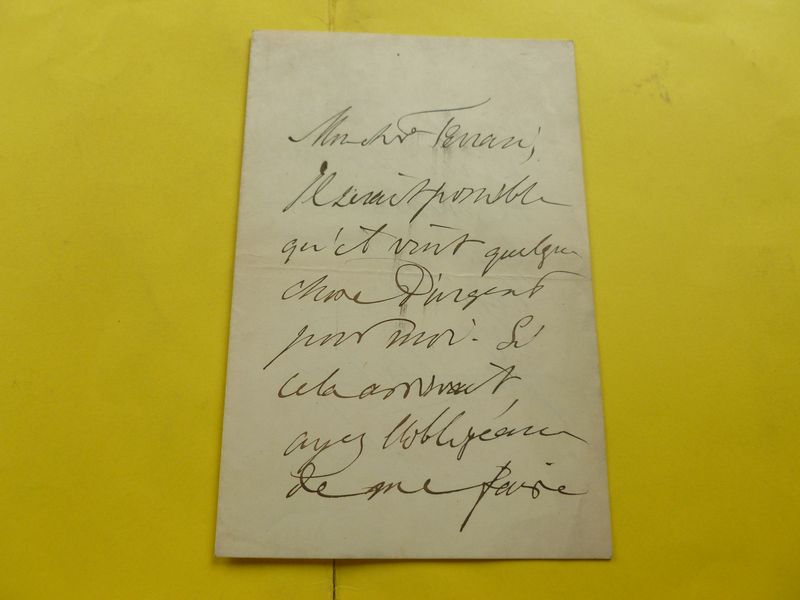 Mon cher Ferrari,
Il serait possible
qu'il vînt quelque
chose d'urgent
pour moi. Si
cela arrivait
ayez l'obligeance
de me faire